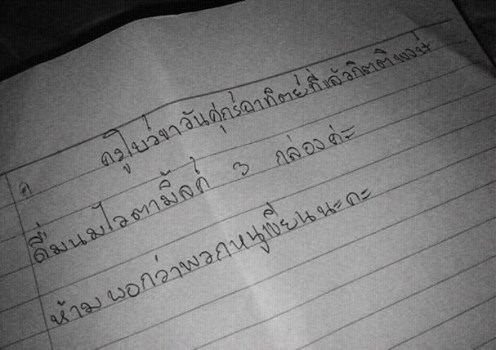 ครูโบว์ขาวันศุกร์อาทิตย์ที่แล้วกิตติพงษ์
ดื่มนมไวตามิ้ลค์ 3 กล่องค่ะ
ห้ามบอกว่าพวกหนูเขียนนะคะ